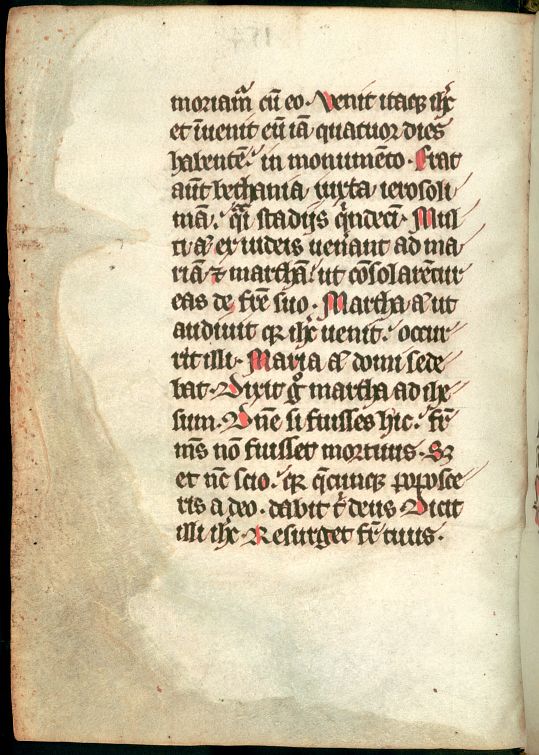 moriam̄ cū eo. Venit itaqꝫ ihc̄
et īuenit eū iā quatuor dies
habentē. in monumēto. Erat
aūt bethania iuxta ierosoli
mā. q̄si stadijs q̄ndecī. Mul
ti a᷑ ex iudeis uenant ad ma
riā ⁊ marthā. ut cōsolarētur
eas de fr̄e suo. Martha a᷑ ut
audiuit qꝛ ihc̄ uenit. occur
rit illi. Maria a᷑ domi sede
bat. Dixit gͦ martha ad ihe
sum. Dn̄e si fuisses hic. fr̄
m̄s nō fuisset mortuus. Sꝫ
et nc̄ scio. qꝛ q̄cunqꝫ poposce
ris a deo. dabit t̄ deus Dicit
illi ihc̄ Resurget fr̄ tuus.